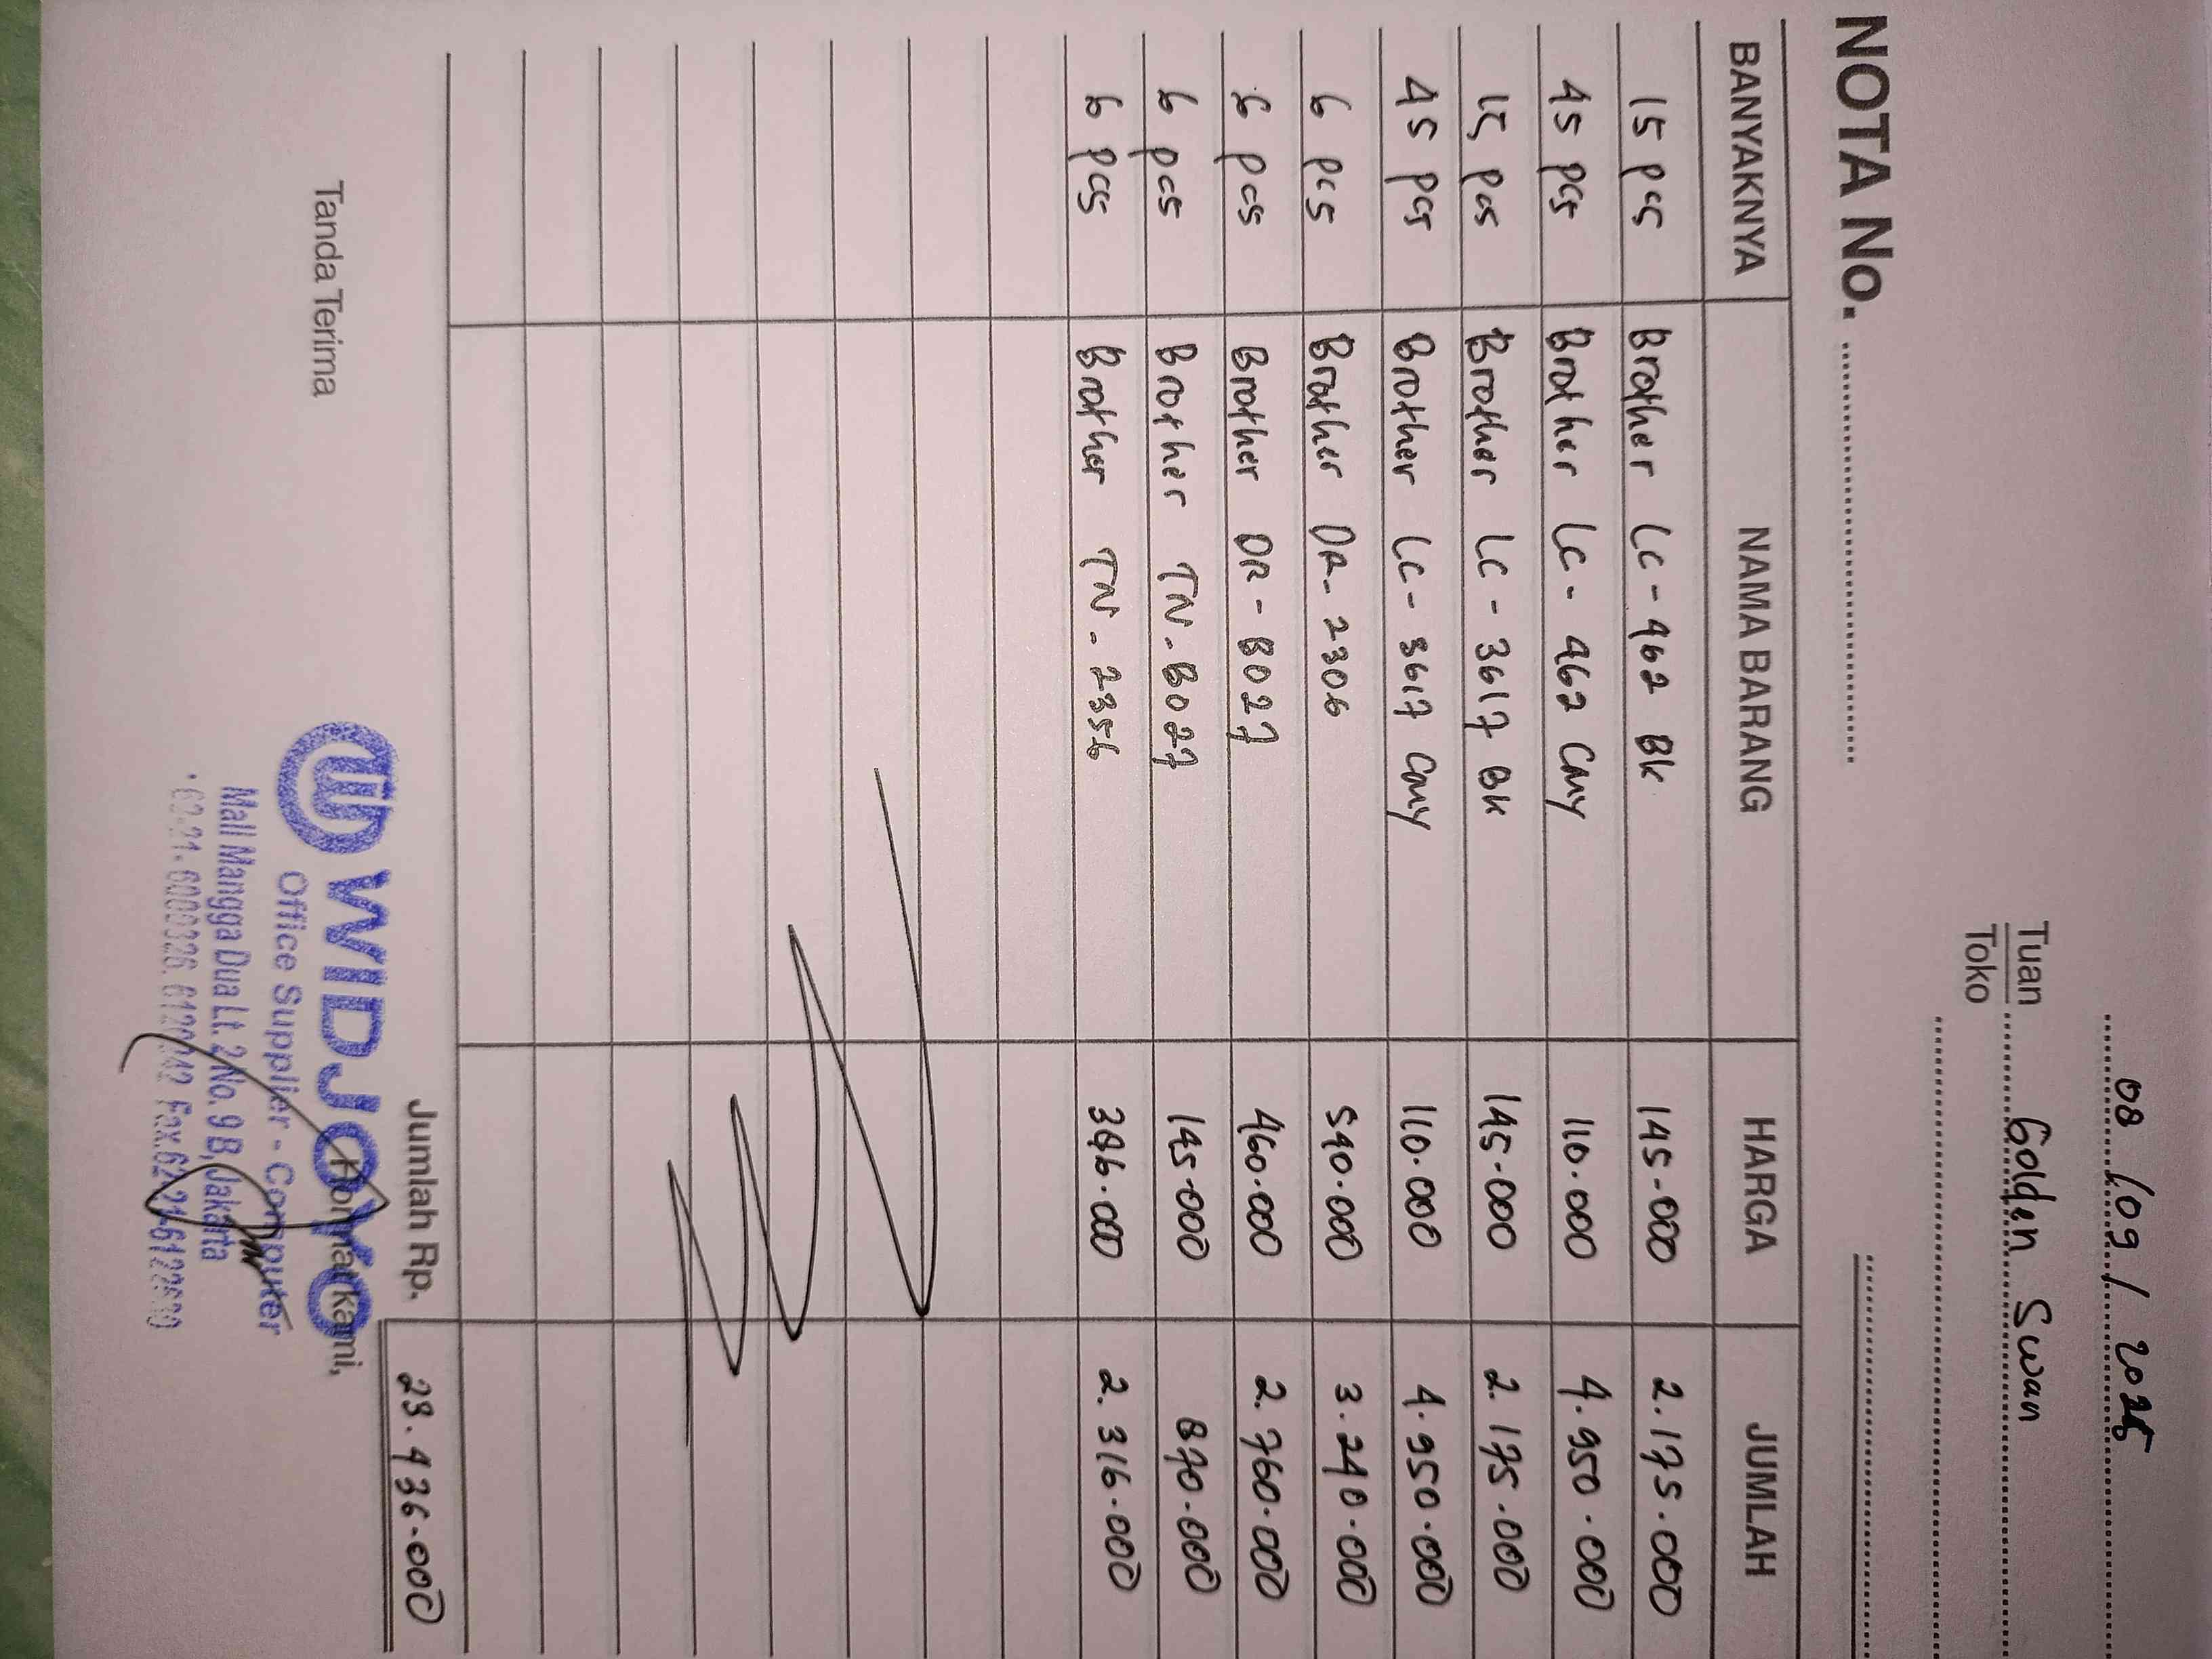 08 / 09 / 2025
Tuan Golden Swan
Toko
NOTA No.
BANYAKNYA NAMA BARANG HARGA JUMLAH
15 pcs Brother LC - 462 BK 145.000 2.175.000
45 pcs Brother LC - 462 CMY 110.000 4.950.000
15 pcs Brother LC - 3617 BK 145.000 2.175.000
45 pcs Brother LC - 3617 CMY 110.000 4.950.000
6 pcs Brother DR - 2306 540.000 3.240.000
6 pcs Brother DR - B027 460.000 2.760.000
6 pcs Brother TN - B027 145.000 870.000
6 pcs Brother TN - 2356 386.000 2.316.000
Jumlah Rp. 23.436.000
Tanda Terima Hormat kami,
WIDJOYO
Office Supplier - Computer
Mall Mangga Dua Lt. 2 No. 9 B, Jakarta